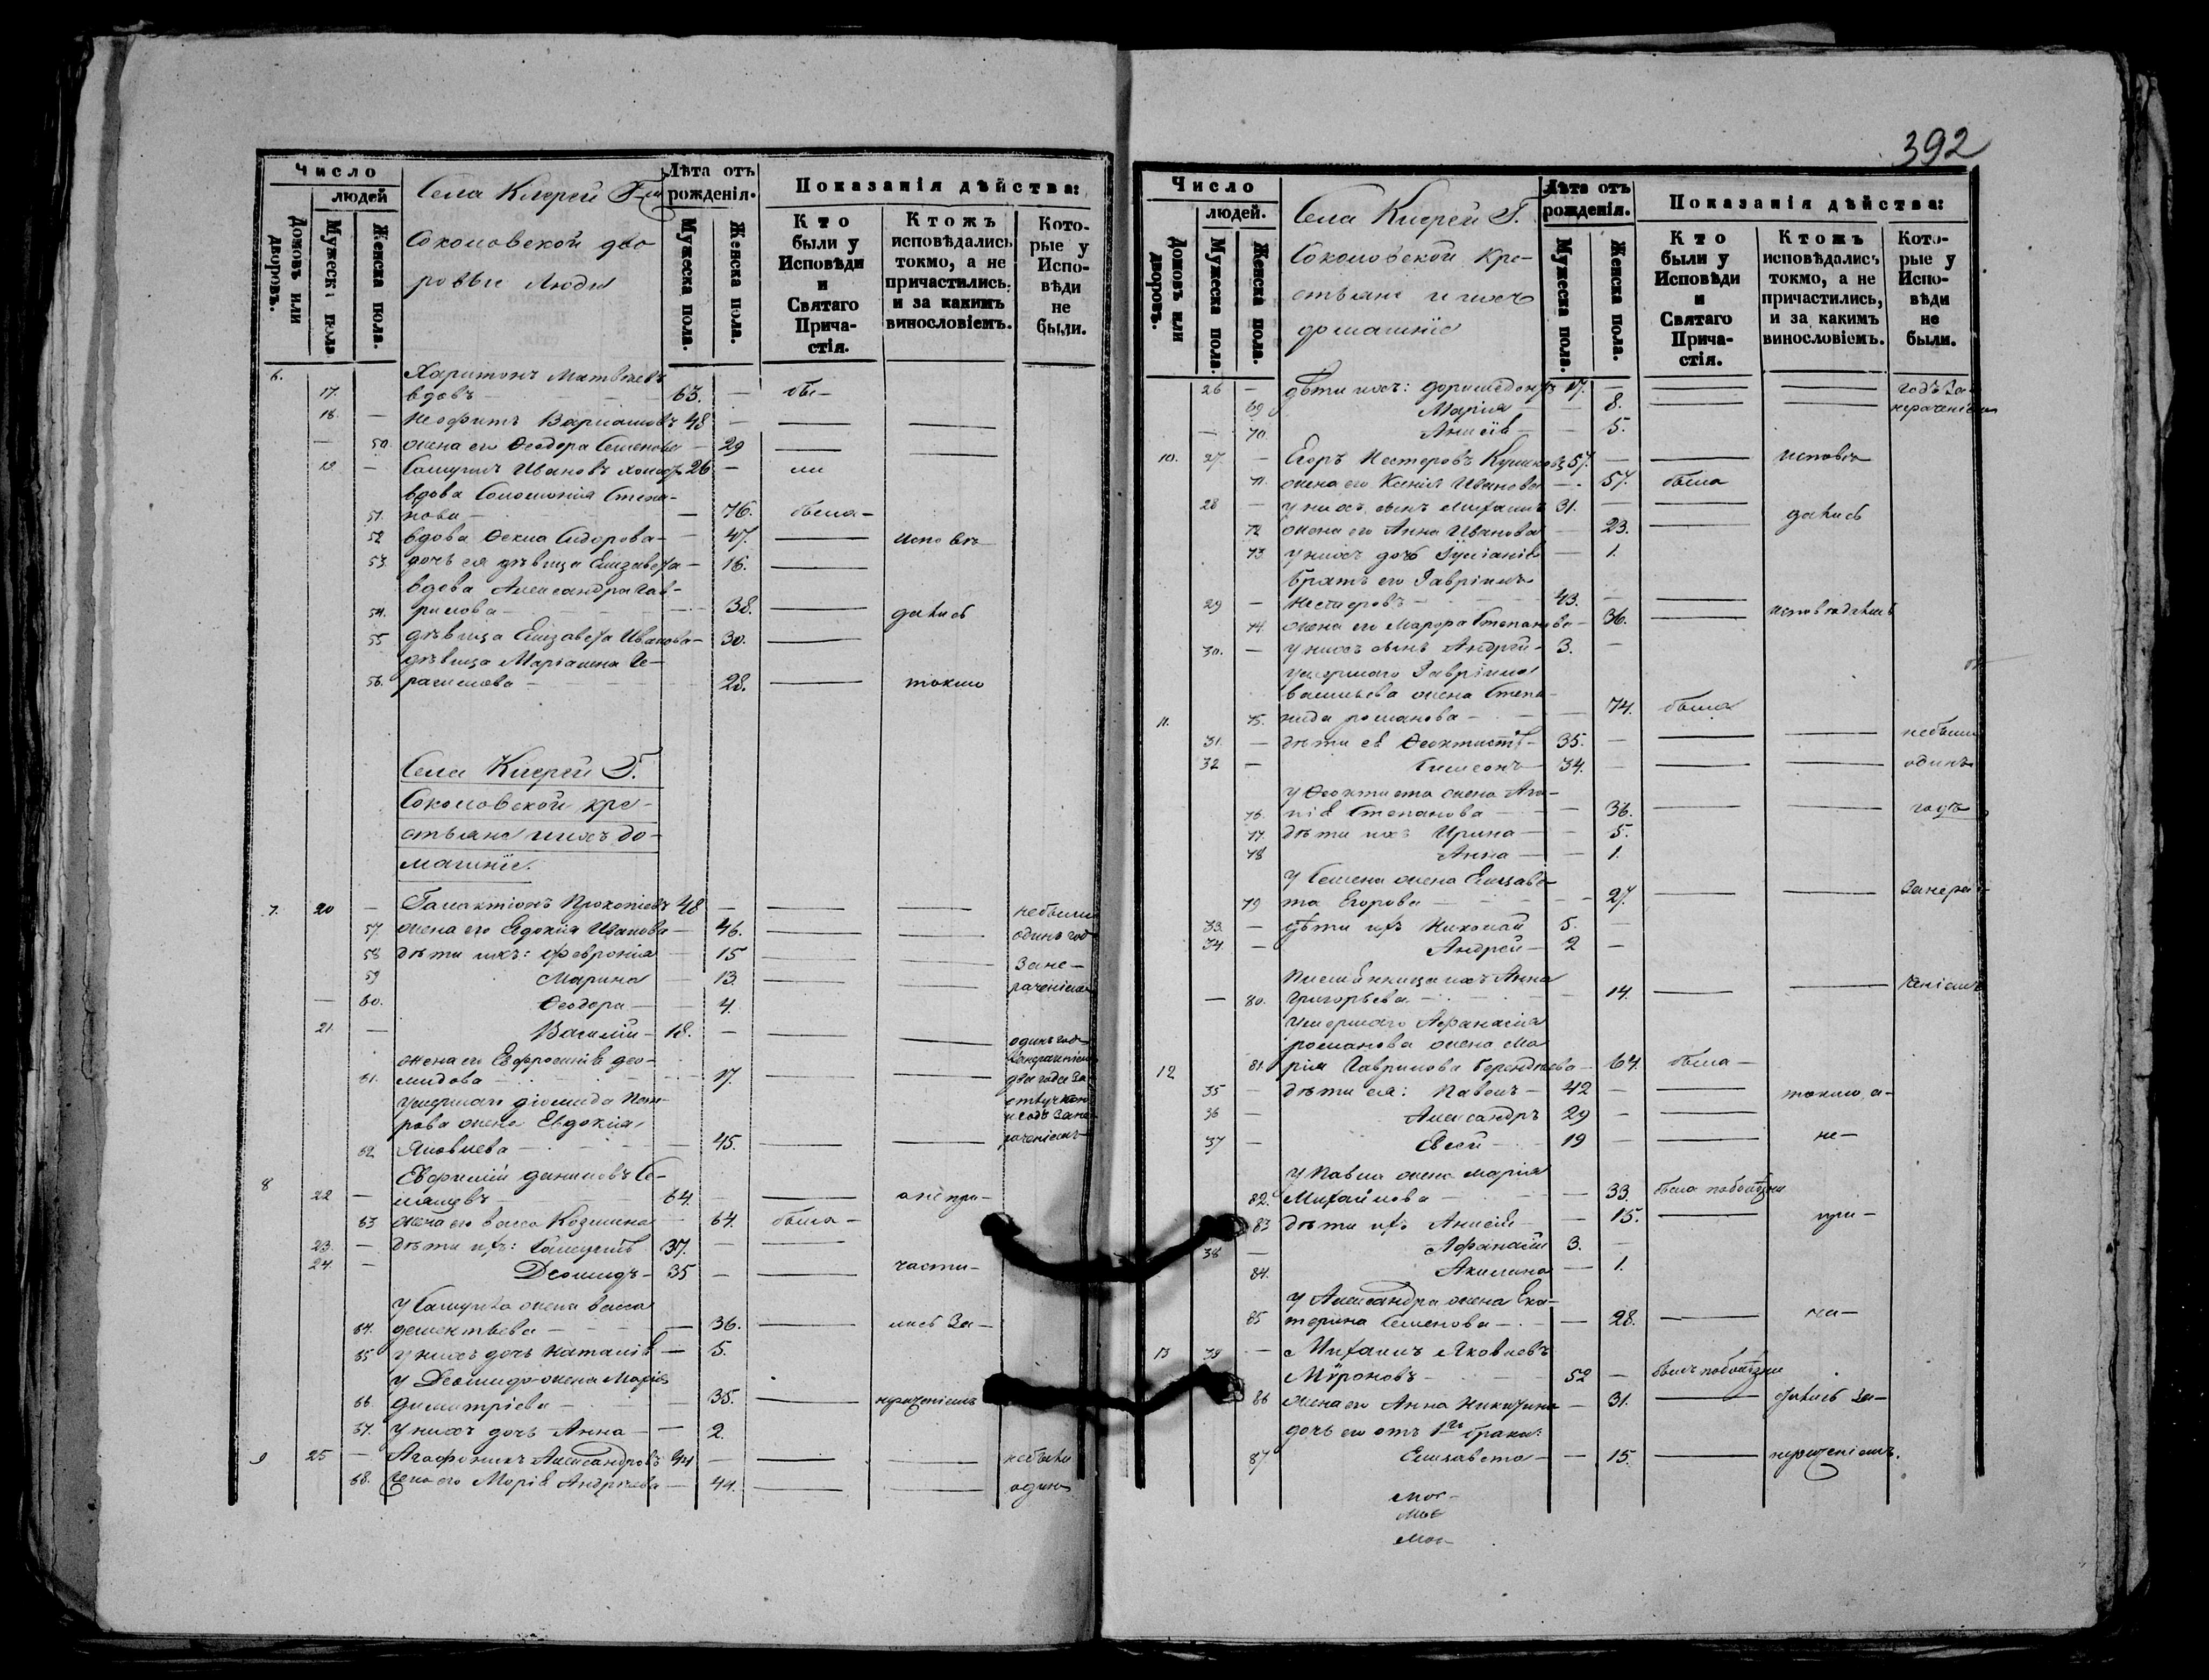 392
Число
людей
Домовъ или дворовъ.
Мужеска пола
Женска пола.
Села Клерей Г-жи
Соколовской дво
ровые люди
Лѣта отъ рожденія.
Мужеска пола.
Женска пола.
Показанія дѣйства:
Кто были у Исповѣди и Святаго Причастія.
Ктожъ исповѣдались токмо, а не причастились, и за какимъ винословіемъ.
Которые у Исповѣди не были.
6. Харитонъ Матвѣевъ
17. вдовъ 63. — бы-
18. — Неофитъ Варламовъ 48 —
— 50. жена его Ѳеодора Семенова — 29
19. — Самуилъ Ивановъ холост 26 — ли
вдова Соломонія Степа-
51. нова — 76. была-
52 вдова Ѳекла Сидорова — 47. исповѣ
53. дочь ея дѣвица Елизавета — 16.
вдова Александра Гав-
54. рилова — 38. дались
55 дѣвица Елизавета Иванова — 30.
дѣвица Маріамна Ге-
56. расимова 28. токмо
Села Клерей Г.
Соколовской кре-
стьяне и ихъ до-
машніе.
7. 20 — Галактіонъ Прокопіевъ 48 — небыли
57. жена его Евдокія Иванова — 46. одинъ год
58 дѣти ихъ: Феврoнія — 15 Зане-
59 Марина — 13. раченіемъ
— 60. Ѳеодора — 4.
21. — Василій — 18. — одинъ годъ
жена его Евфросинія Део-
61. мидова 17. два года за
умершаго Діомида Пет-
рова жена Евдокія
62 Яковлева — 45. раченіемъ
8 Евфимій Даниловъ Се-
22 — машевъ 64. а не при-
63 жена его Васса Козмина — 64. была-
23. — дѣти ихъ: Самуилъ 37. —
24. — Деомидъ — 35 — части-
у Самуила жена Васса
64. Дементьева — 36. лись За-
65 у нихъ дочь Наталія — 5.
у Деомида жена Марія
66. Димитріева — 35. нераченіемъ
67. у нихъ дочь Анна — 2.
9 25 — Агафоникъ Александровъ 44 — небыли
68. жена его Марія Андреева — 44. одинъ
Число
людей.
Домовъ или дворовъ.
Мужеска пола.
Женска пола.
Села Клерей Г.
Соколовской Кре-
стьяне и ихъ
домашніе
Лѣта отъ рожденія.
Мужеска пола.
Женска пола.
Показанія дѣйства:
Кто были у Исповѣди и Святаго Причастія.
Ктожъ исповѣдались токмо, а не причастились, и за какимъ винословіемъ.
Которые у Исповѣди не были.
26 — дѣти ихъ: Доримедонтъ 17. — годъ За-
69 Марія — 8. нераченіемъ
— 70. Анисія — 5.
10. 27. — Егоръ Нестеровъ 57. — исповѣ
71. жена его Ксенія Иванова — 57. была
28 — у нихъ сынъ Михаилъ 31. —
72 жена его Анна Иванова — 23. дались
73. у нихъ дочь Іуліанія — 1.
братъ его Гавріилъ
29 — Нестеровъ 43. —
74. жена его Марфа Степанова — 36. исповѣдались
30. — у нихъ сынъ Андрей — 3. —
умершаго Гавріила
Васильева жена Степа-
11. 75. нида Романова — 74. была
31. — дѣти её Ѳеоктистъ — 35. — небыли
32 — Симеонъ — 34. — одинъ
у Ѳеоктиста жена Ага-
76. пія Степанова — 36. годъ
77. дѣти ихъ Ирина — 5.
78 Анна — 1.
у Семена жена Елизаве-
79 та Егорова — 27. Занера-
33. — дѣти ихъ Николай 5. —
34. — Андрей — 2 —
племянница ихъ Анна
— 80. Григорьева — 14. ченіемъ
умершаго Афанасія
Романова жена Ма
12 81. рія Гаврилова Берендѣева — 64. была-
35 — дѣти ея: Павелъ — 42 — токмо, а-
36 — Александръ 29 —
37 — Евсей 19 — не-
у Павла жена Марія
82. Михайлова — 33. была
83 дѣти ихъ Анисія — 15. при-
38 — Афанасій 3. —
84. Акилина — 1.
у Александра жена Ека-
85 терина Семенова — 28. ча-
13 39 — Михаилъ Яковлевъ
Мироновъ 52 — былъ
86 жена его Анна Никитина — 31. стились За-
дочь его отъ 1го брака:
87 Елизавета — 15. нераченіемъ.